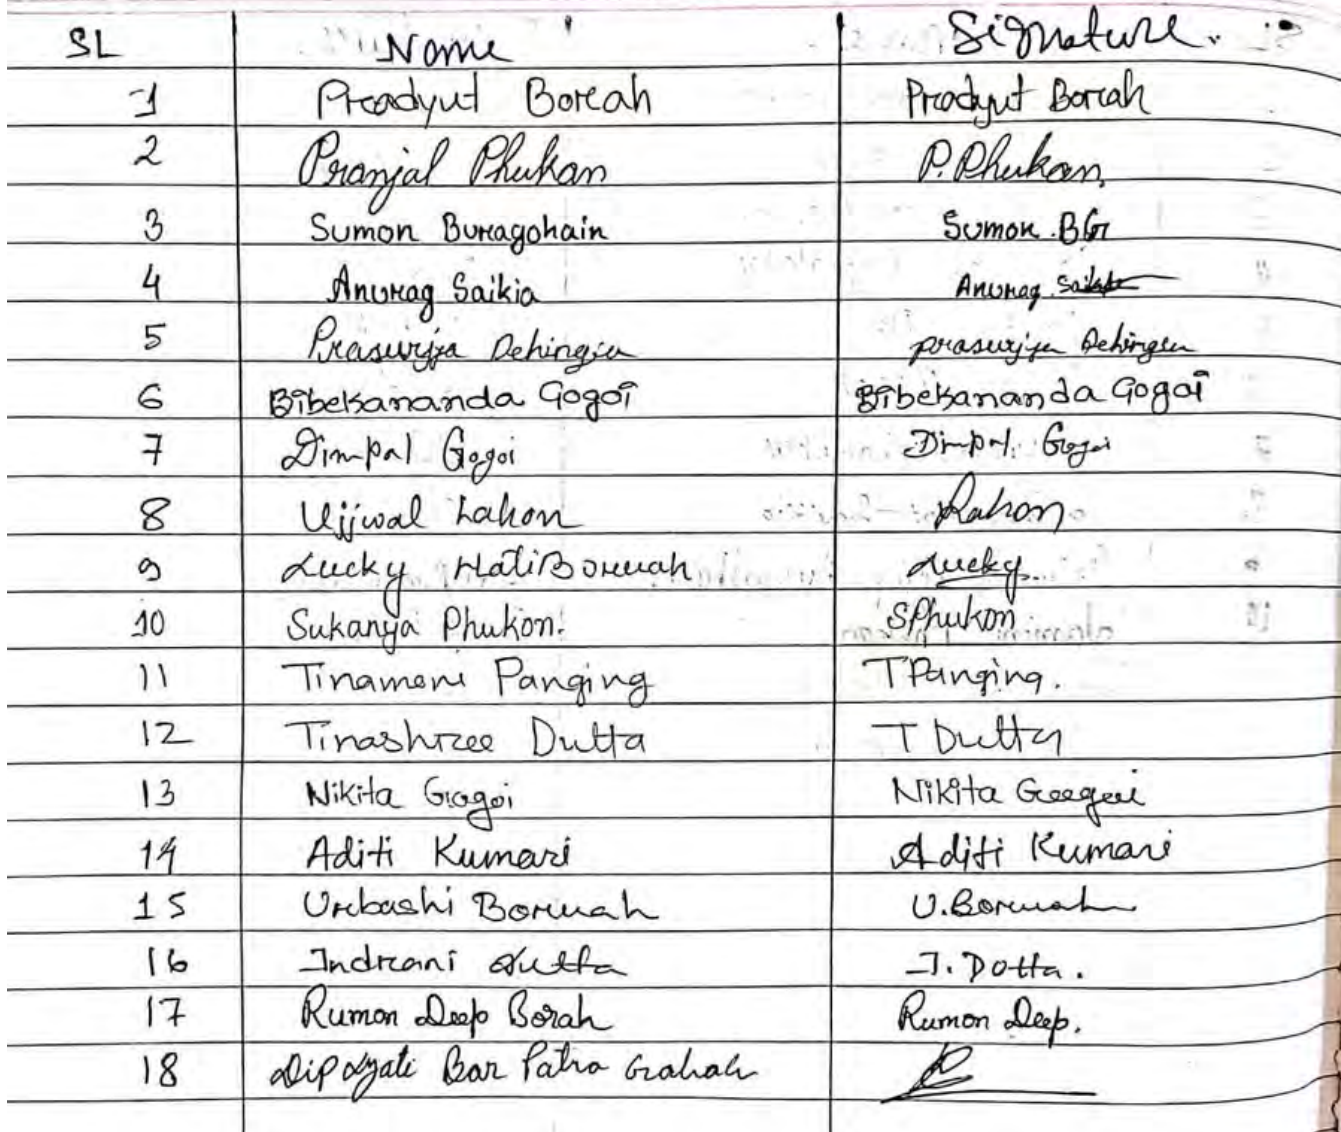 SL Name Signature.
1 Pradyut Borah Pradyut Borah
2 Pranjal Phukan P. Phukan,
3 Sumon Buragohain Sumon. BG
4 Anurag Saikia Anurag Saikia
5 Prasurjya Dehingia prasurjya Dehingia
6 Bibekananda Gogoi Bibekananda Gogoi
7 Dimpal Gogoi Dimpal Gogoi
8 Ujjwal Lahon Lahon
9 Lucky HatiBoruah Lucky
10 Sukanya Phukon. SPhukon
11 Tinamoni Panging TPanging.
12 Tinashree Dutta T Dutta
13 Nikita Gogoi Nikita Gogoi
14 Aditi Kumari Aditi Kumari
15 Urbashi Boruah U.Boruah
16 Indrani Dutta I. Dotta.
17 Rumon Deep Borah Rumon Deep.
18 Dip Bar Patra